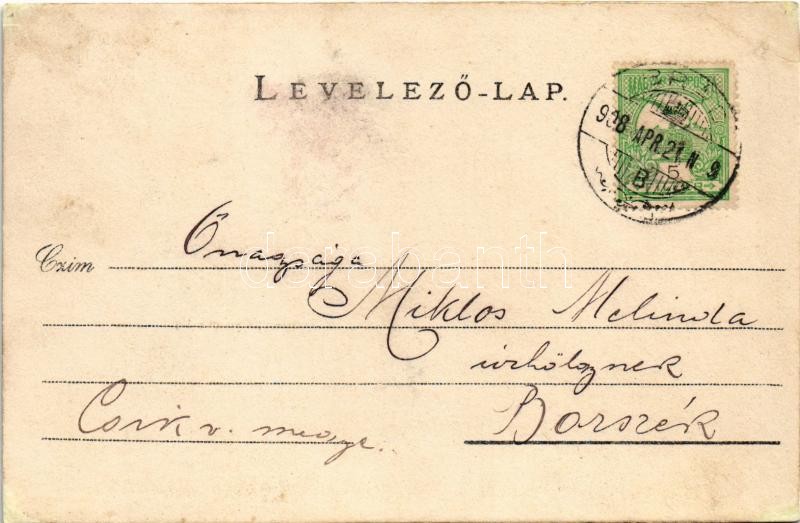 LEVELEZŐ-LAP.
908 APR. 21 N 9
B
5
Czim Őnagysága
Miklos Melinda
úrhölgynek
Borszék
Csik v. megye.
darabanth